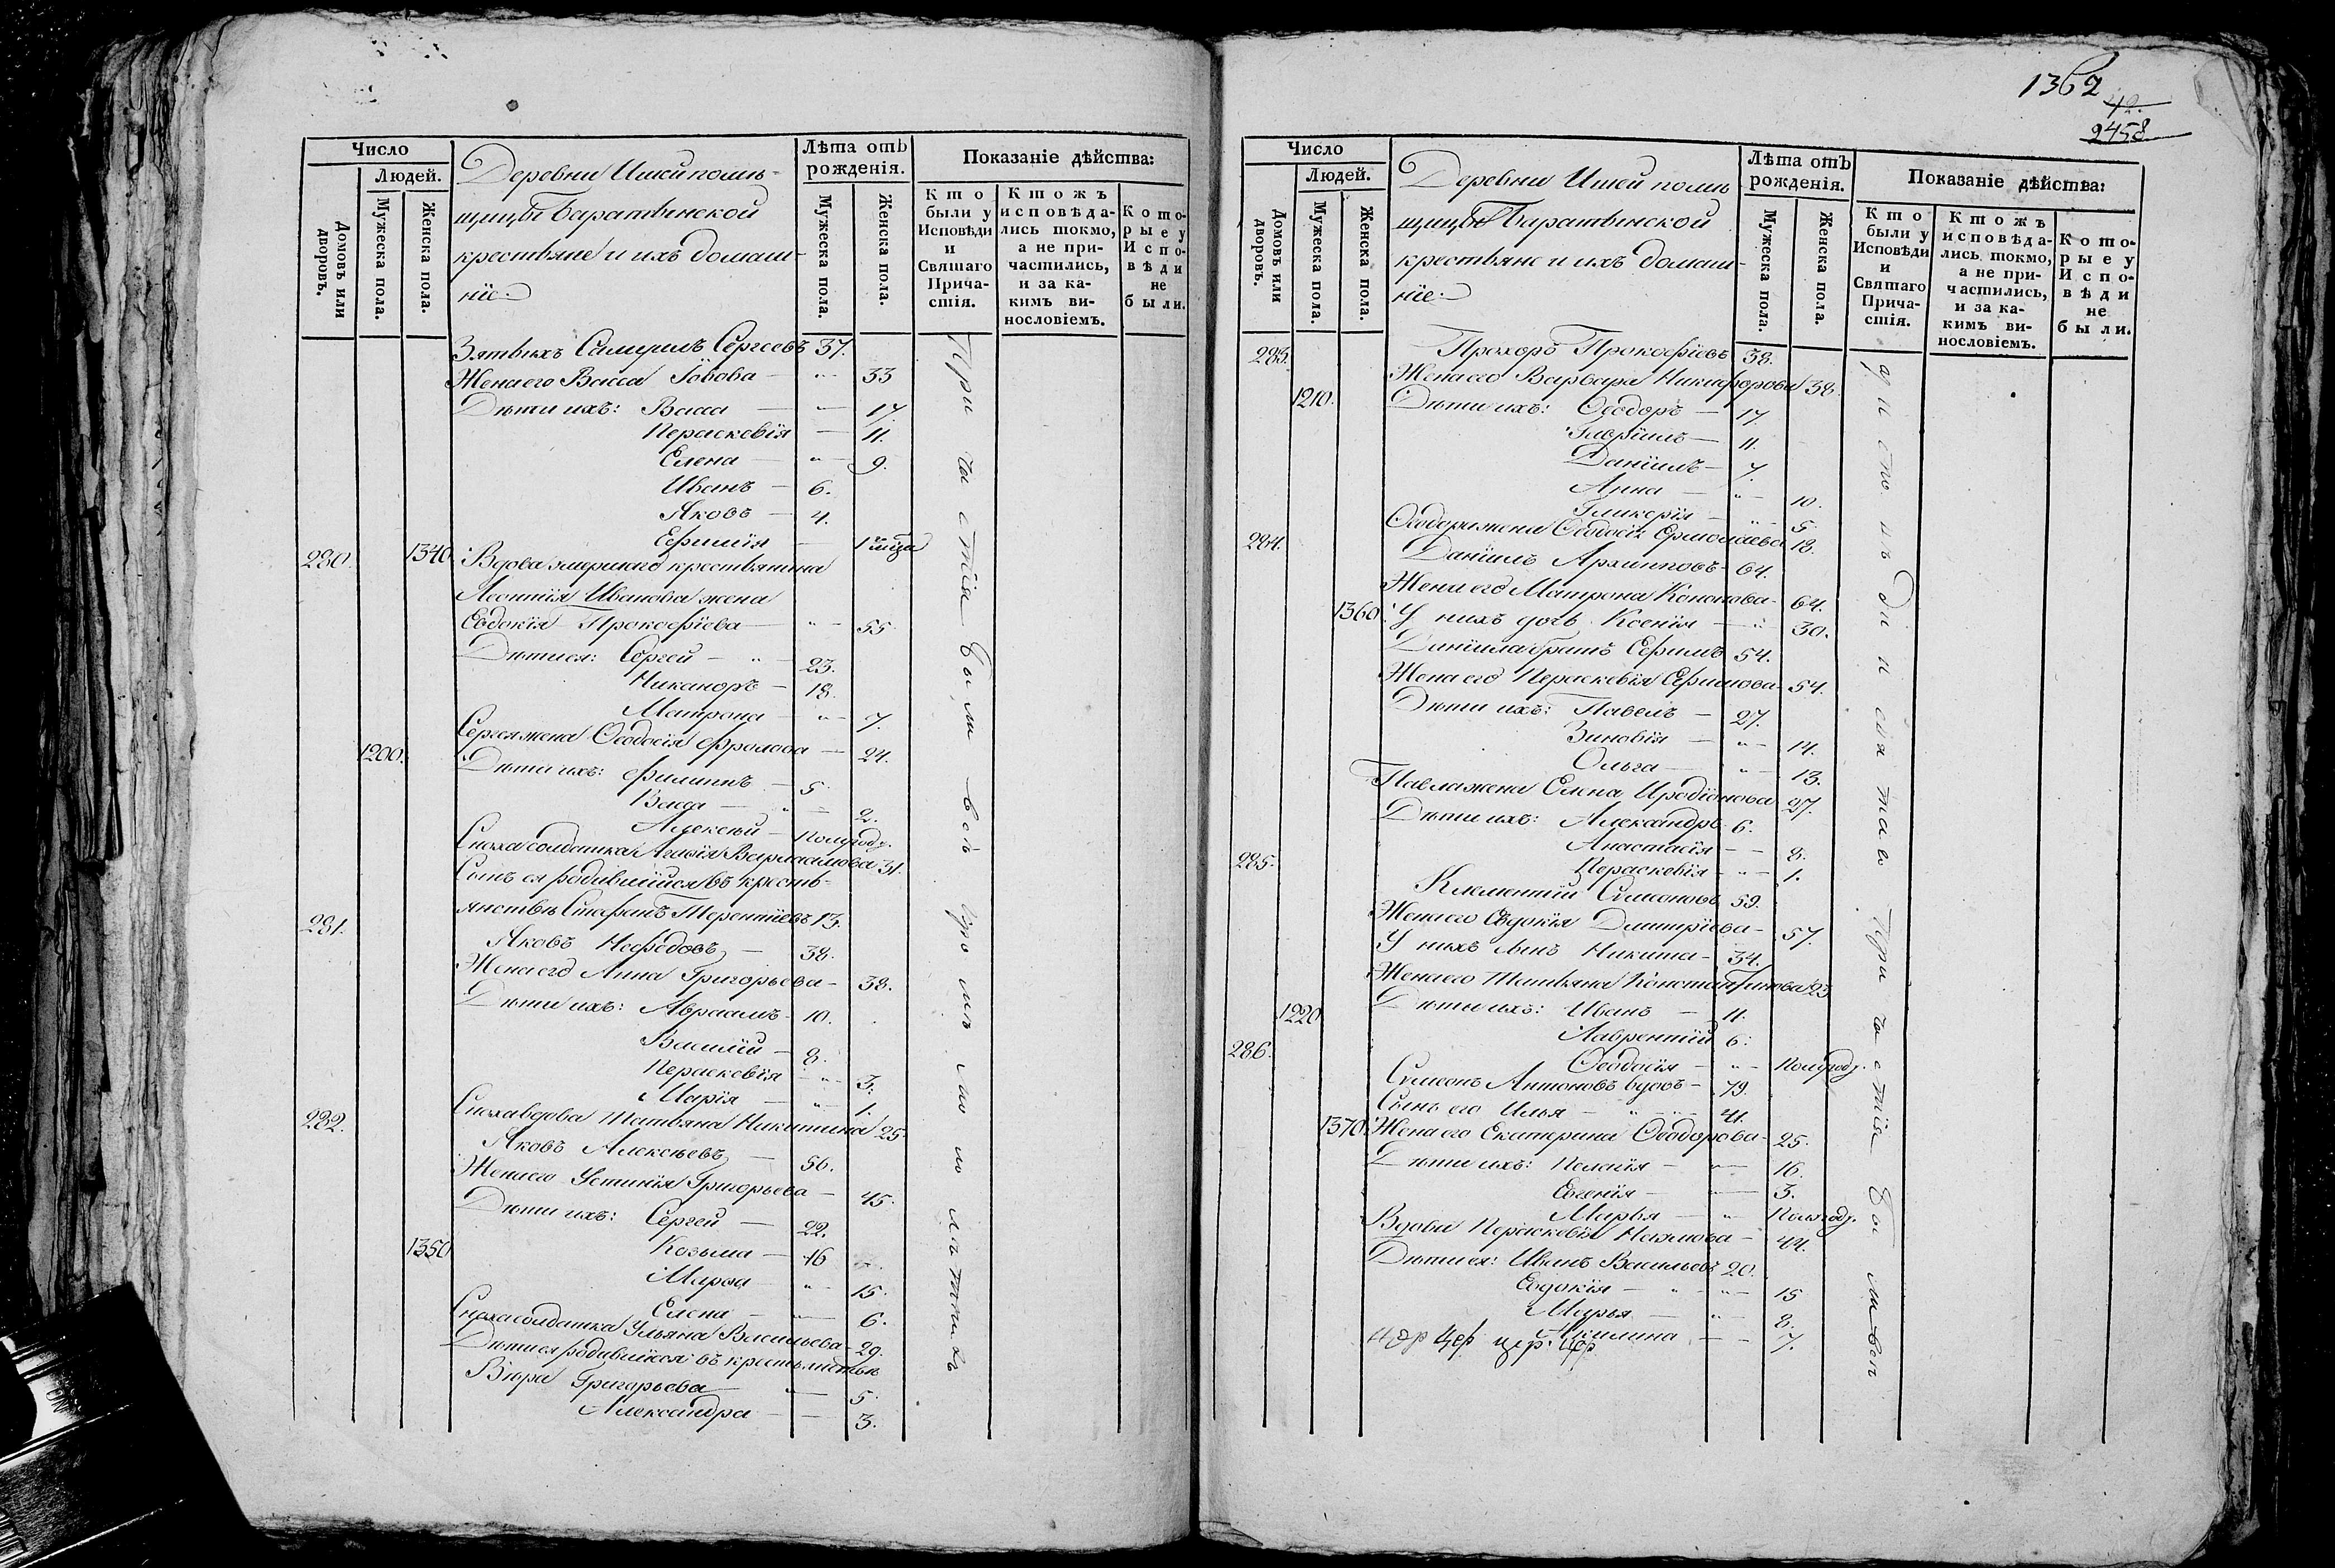 Число
Людей.
Домовъ или дворовъ.
Мужеска пола.
Женска пола.
Деревни Ишеи помѣ-
щицы Баратынской
крестьяне и ихъ домаш-
ніе:
Лѣта отъ рожденія.
Мужеска пола.
Женска пола.
Показаніе дѣйства:
Кто были у Исповѣди и Святаго Причастія.
Ктожъ исповѣдались токмо, а не причастились, и за какимъ винословіемъ.
Которые у Исповѣди не были.
Зять ихъ Самуилъ Сергеевъ 37.
Жена его Васса Іовова — " — 33
Дѣти ихъ: Васса — " — 17.
Параскевія — 11.
Елена — " — 9.
Иванъ — 6.
Яковъ — 4.
Ефимія — 1
280. 1340. Вдова умершаго крестьянина
Леонтія Иванова жена
Евдокія Прокофіева — " — 55
Дѣти ея: Сергей — " — 23.
Никаноръ — 18.
Матрона — " — 7.
Сергея жена Ѳеодосія Фролова — 24.
1200. Дѣти ихъ: Филиппъ — 5
Васса — " — 2.
Алексѣй — полугоду.
Сноха солдатка Агафія Варлаамова 31.
Сынъ ея родившійся въ кресть-
янствѣ Стефанъ Терентіевъ 13.
281. Яковъ Нефедовъ — 38.
Жена его Анна Григорьева — 38.
Дѣти ихъ: Авраамъ — 10.
Василій — 8.
Параскевія — " — 3.
Марія — " — 1.
Сноха вдова Татьяна Никитина 25.
282. Яковъ Алексѣевъ — 56.
Жена его Устинія Григорьева — 45.
Дѣти ихъ: Сергей — 22.
1350 Козьма — 16
Марѳа — " — 15.
Елена — " — 6.
Сноха солдатка Ульяна Васильева — 29.
Дѣти ея родившіеся въ крестьянствѣ
Григорьева — " — 5.
Александра — — 3.
Причастія были
1362
42.
2458
Число
Людей.
Домовъ или дворовъ.
Мужеска пола.
Женска пола.
Деревни Ишеи помѣ
щицы Баратынской
крестьяне и ихъ домаш-
ніе:
Лѣта отъ рожденія.
Мужеска пола.
Женска пола.
Показаніе дѣйства:
Кто были у Исповѣди и Святаго Причастія.
Ктожъ исповѣдались токмо, а не причастились, и за какимъ винословіемъ.
Которые у Исповѣди не были.
283. Прохоръ Прокофіевъ 38.
Жена его Варвара Никифорова 38.
1210. Дѣти ихъ: Ѳеодоръ — 17.
Гавріилъ — 11.
Даніилъ — 7.
Анна — " — 10.
Гликерія — " — 5.
Ѳеодора жена Ѳеодосія Ермолаева 18.
284. Даніилъ Архиповъ — 64.
Жена его Матрона Кононова — 64.
1360. У нихъ дочь Ксенія — " — 30.
Даніила братъ Ефимъ 54.
Жена его Параскевія Ефимова — 54.
Дѣти ихъ: Павелъ — 27.
Зиновія — " — 14.
Ольга — " — 13.
Павла жена Елена Иродіонова 27.
Дѣти ихъ: Александръ 6.
Анастасія — — 8.
Параскевія — " — 1.
285. Климентій Симеоновъ 59.
Жена его Евдокія Дмитріева — 57.
У нихъ сынъ Никита — 34.
Жена его Татьяна Константинова 23
1220 Дѣти ихъ: Иванъ — 11.
Лаврентій 6.
Ѳеодосія — " — полугоду.
286. Симеонъ Антоновъ вдовъ — 79.
Сынъ его Илья — " — 41.
1370. Жена его Екатерина Ѳеодорова — 25.
Дѣти ихъ: Пелагія — " — 16.
Евгенія — " — 3.
Марья — " — полугоду.
Вдова Параскевія Наумова — 44.
Дѣти ея: Иванъ Васильевъ 20.
Евдокія — " — 15
Марья — " — 8.
Акилина — — 7.
Причастія